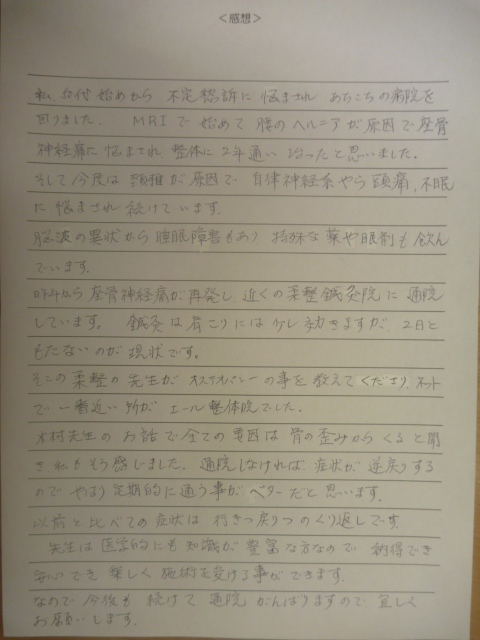 ＜感想＞
私 始めから 不定愁訴に 悩まされ あちこちの病院を
回りました。 MRIで 始めて 腰のヘルニアが原因で座骨
神経痛に悩まされ 整体に2年通い 治ったと思いました。
そして今度は 頚椎が原因で 自律神経系やら頭痛、不眠
に 悩まされ続けています。
脳波の異状から 睡眠障害もあり 特殊な薬や眠剤も飲ん
でいます。
から 座骨神経痛が再発し 近くの柔整鍼灸院に 通院
しています。 鍼灸は肩こりには少し効きますが、2日と
もたないのが 現状です。
そこの柔整の先生が オステオパシーの事を教えてくださり、ネット
で 一番近い所が エール整体院でした。
木村先生の お話で全ての要因は 骨の歪みからくると聞
き 私もそう感じました。 通院しなければ 症状が逆戻りする
ので やはり定期的に通う事が ベターだと思います。
以前と比べての症状は 行きつ戻りつのくり返しです。
先生は医学的にも知識が豊富な方なので 納得でき
安心でき 楽しく 施術を受ける事ができます。
なので 今後も 続けて 通院 がんばりますので 宜しく
お願いします。